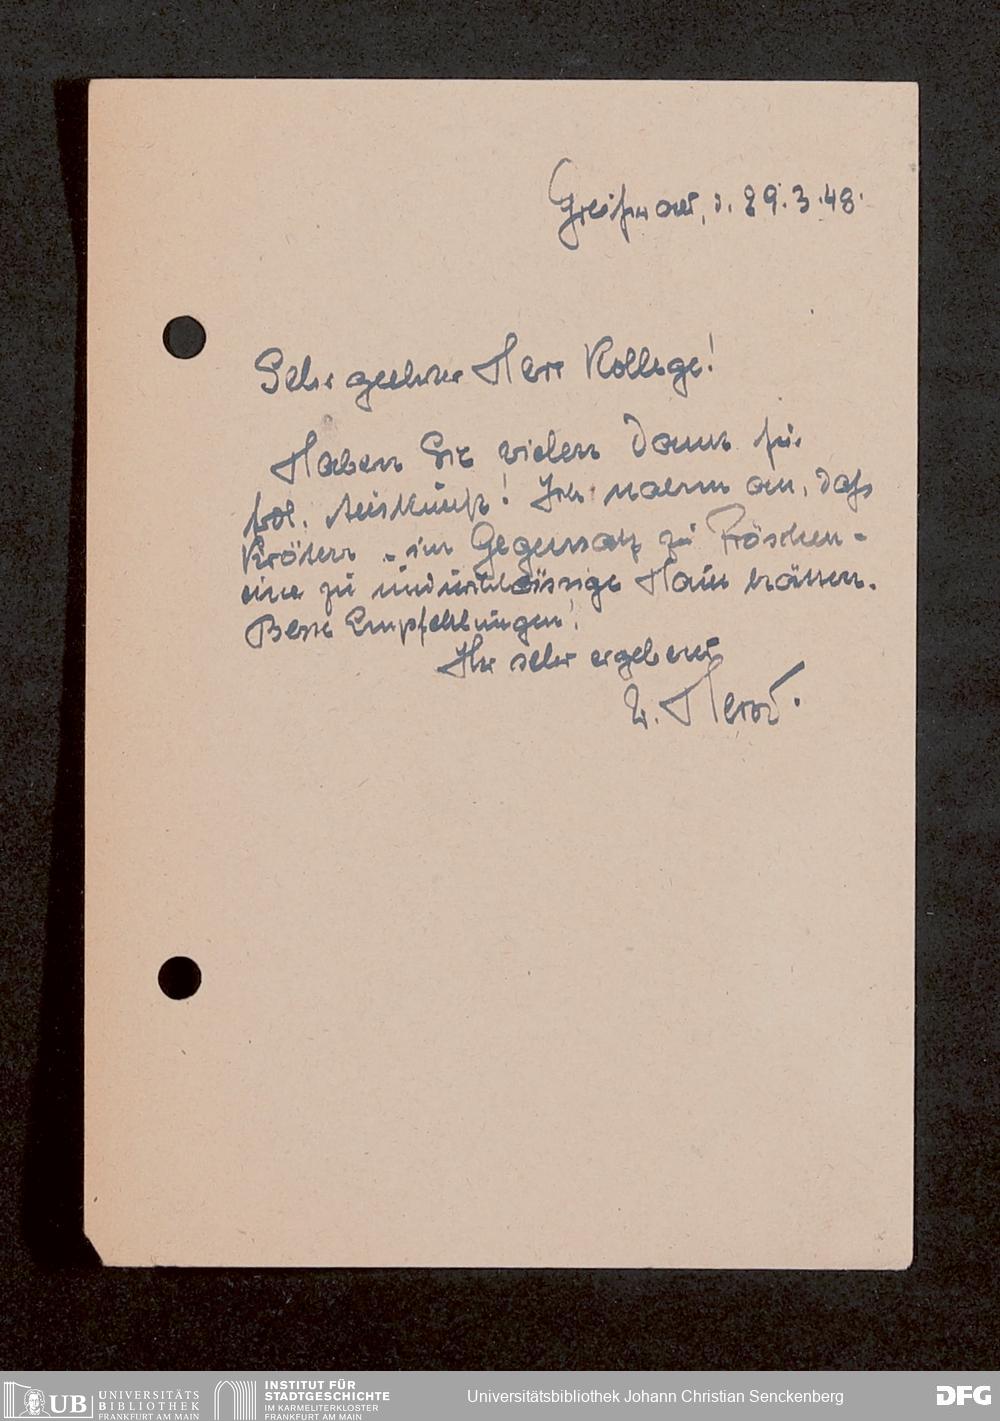 Greifswald, d. 29.3.48.
Sehr geehrter Herr Kollege!
Haben Sie vielen Dank für
frdl. Auskunft! Ich nahm an, daß
Kröten - im Gegensatz zu Fröschen -
eine zu undurchlässige Haut hätten.
Beste Empfehlungen!
Ihr sehr ergebener
W. Herst.
UB UNIVERSITÄTS
BIBLIOTHEK
FRANKFURT AM MAIN
INSTITUT FÜR
STADTGESCHICHTE
IM KARMELITERKLOSTER
FRANKFURT AM MAIN
Universitätsbibliothek Johann Christian Senckenberg
DFG